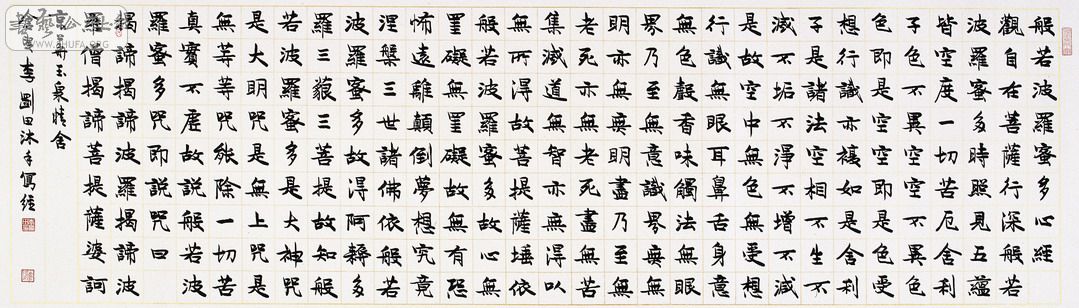 般若波羅蜜多心經
觀自在菩薩行深般若
波羅蜜多時照見五蘊
皆空度一切苦厄舍利
子色不異空空不異色
色即是空空即是色受
想行識亦復如是舍利
子是諸法空相不生不
滅不垢不淨不增不減
是故空中無色無受想
行識無眼耳鼻舌身意
無色聲香味觸法無眼
界乃至無意識界無無
明亦無無明盡乃至無
老死亦無老死盡無苦
集滅道無智亦無得以
無所得故菩提薩埵依
般若波羅蜜多故心無
罣礙無罣礙故無有恐
怖遠離顛倒夢想究竟
涅槃三世諸佛依般若
波羅蜜多故得阿耨多
羅三藐三菩提故知般
若波羅蜜多是大神咒
是大明咒是無上咒是
無等等咒能除一切苦
真實不虛故說般若波
羅蜜多咒即說咒曰
揭諦揭諦波羅揭諦波
羅僧揭諦菩提薩婆訶
玉泉精舍
李劉田沐手寫經